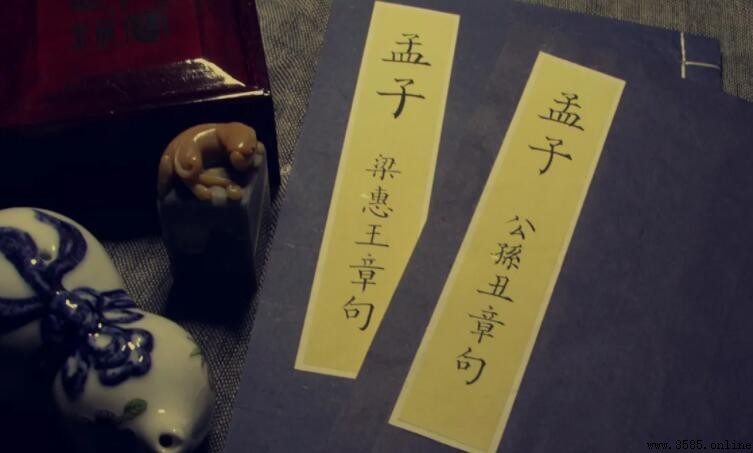 孟子 梁惠王章句
孟子 公孫丑章句
www.8585.online